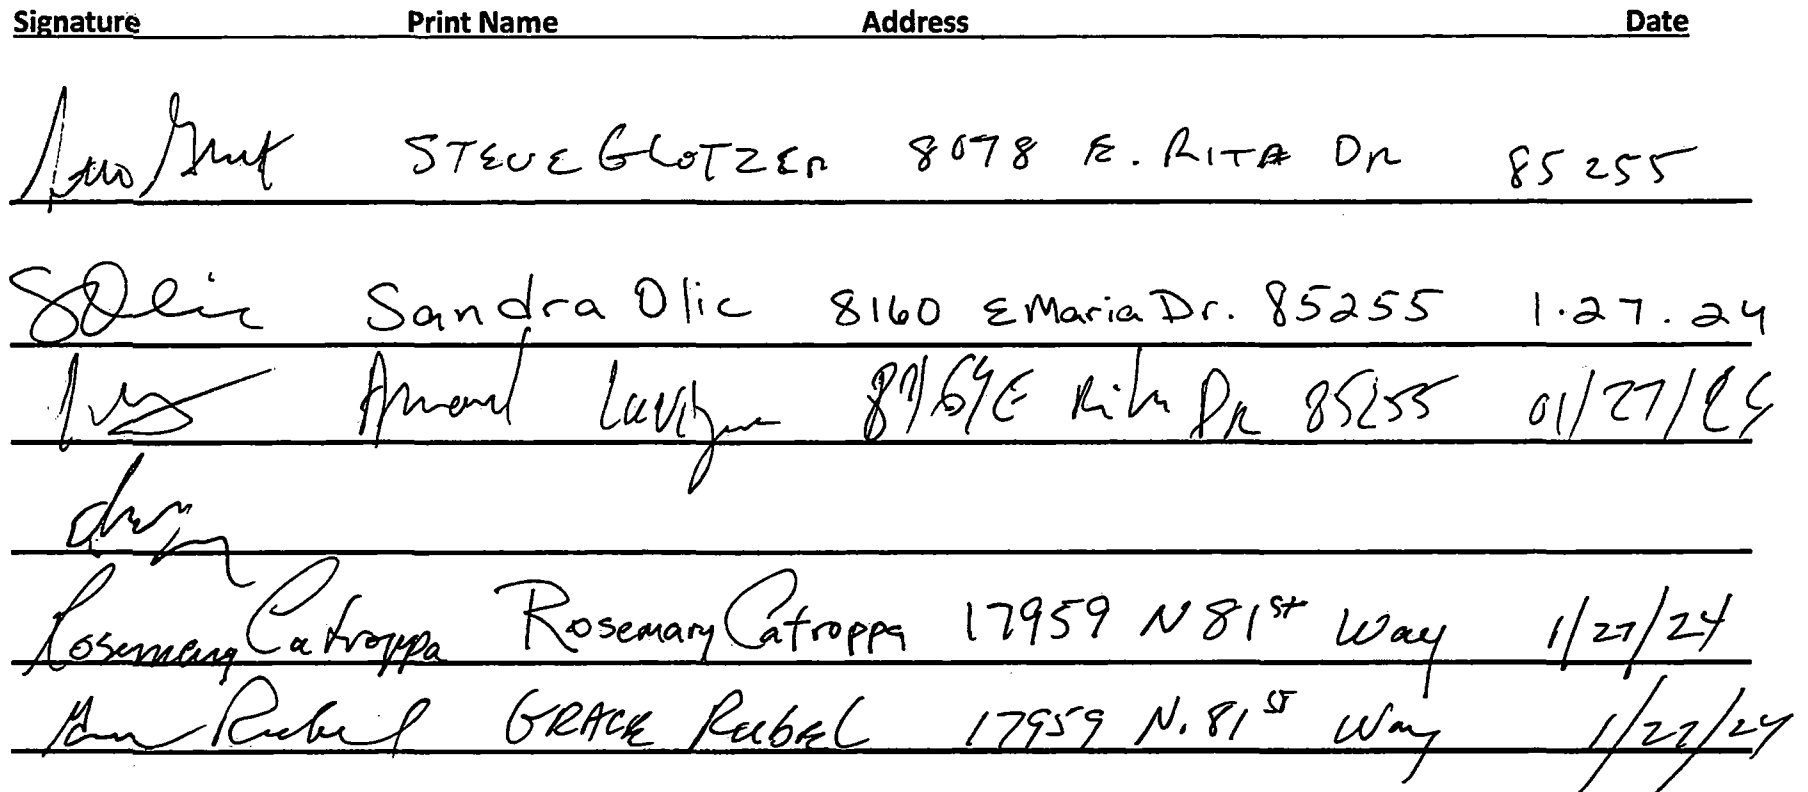 Signature Print Name Address Date
STEVE GLOTZER 8078 E. RITA DR 85255
SOlic Sandra Olic 8160 E Maria Dr. 85255 1.27.24
Armand E Rita DR 85255 01/27/24
Rosemary Catroppa Rosemary Catroppa 17959 N 81st Way 1/27/24
GRACE Reubel 17959 N. 81ST Way 1/27/24